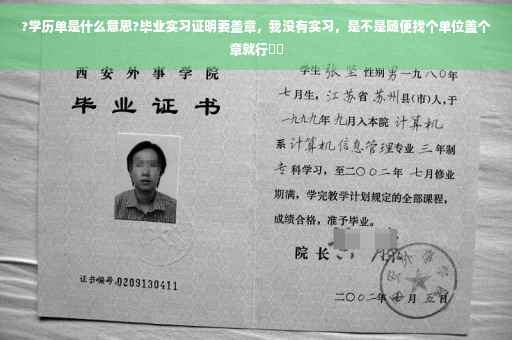 ?学历单是什么意思?毕业实习证明要盖章，我没有实习，是不是随便找个单位盖个
章就行▯▯
西安外事学院
毕业证书
证书编号:0209130411
学生张坚性别男一九八〇年
七月生，江苏省苏州县(市)人，于
一九九九年九月入本院计算机
系计算机信息管理专业三年制
专科学习，至二〇〇二年七月修业
期满，学完教学计划规定的全部课程，
成绩合格，准予毕业。
院长
二〇〇二年七月五日